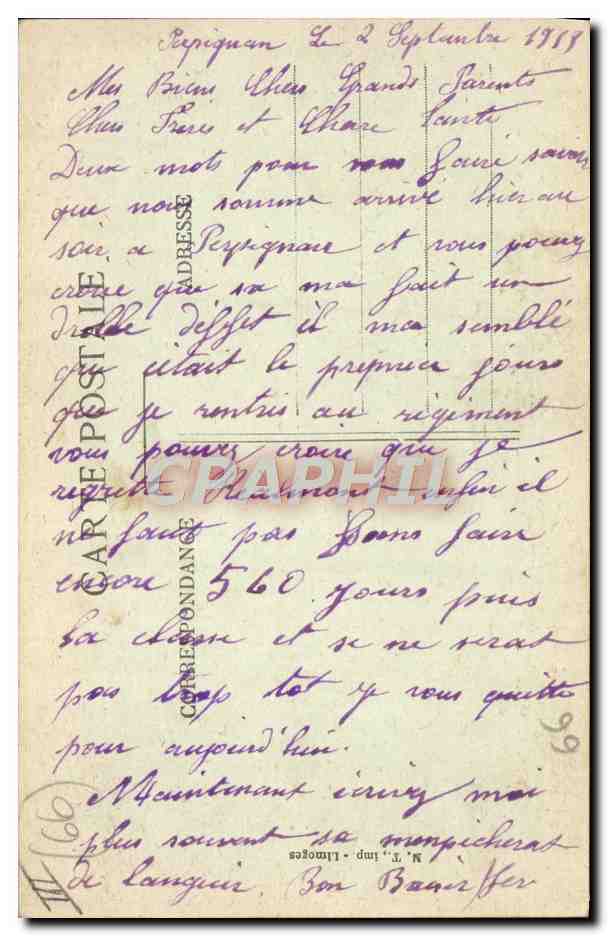 Perpignan Le 2 Septembre 1913
Mes Biens Chers Grands Parents
Chers Frères et Chere Tante
Deux mots pour vous faire savoir
que nous somme arrivé hier au
soir a Perpignan et vous pouvez
croire que sa ma fait un
drolle déffet il ma semblé
que cétait le premier jours
que je rentris au régiment
vous pouvez croire que je
regrete Réalmont enfin il
ne faut pas sans faire
encore 560 jours puis
la classe et se ne serat
pas trop tot je vous quitte
pour aujourd'hui.
Maintenant écrivez moi
plus souvent sa menpécherat
de languir. Bon Baiser
CARTE POSTALE
CORRESPONDANCE
ADRESSE
M. T., imp - Limoges
GRAPHIL
99
III (99)